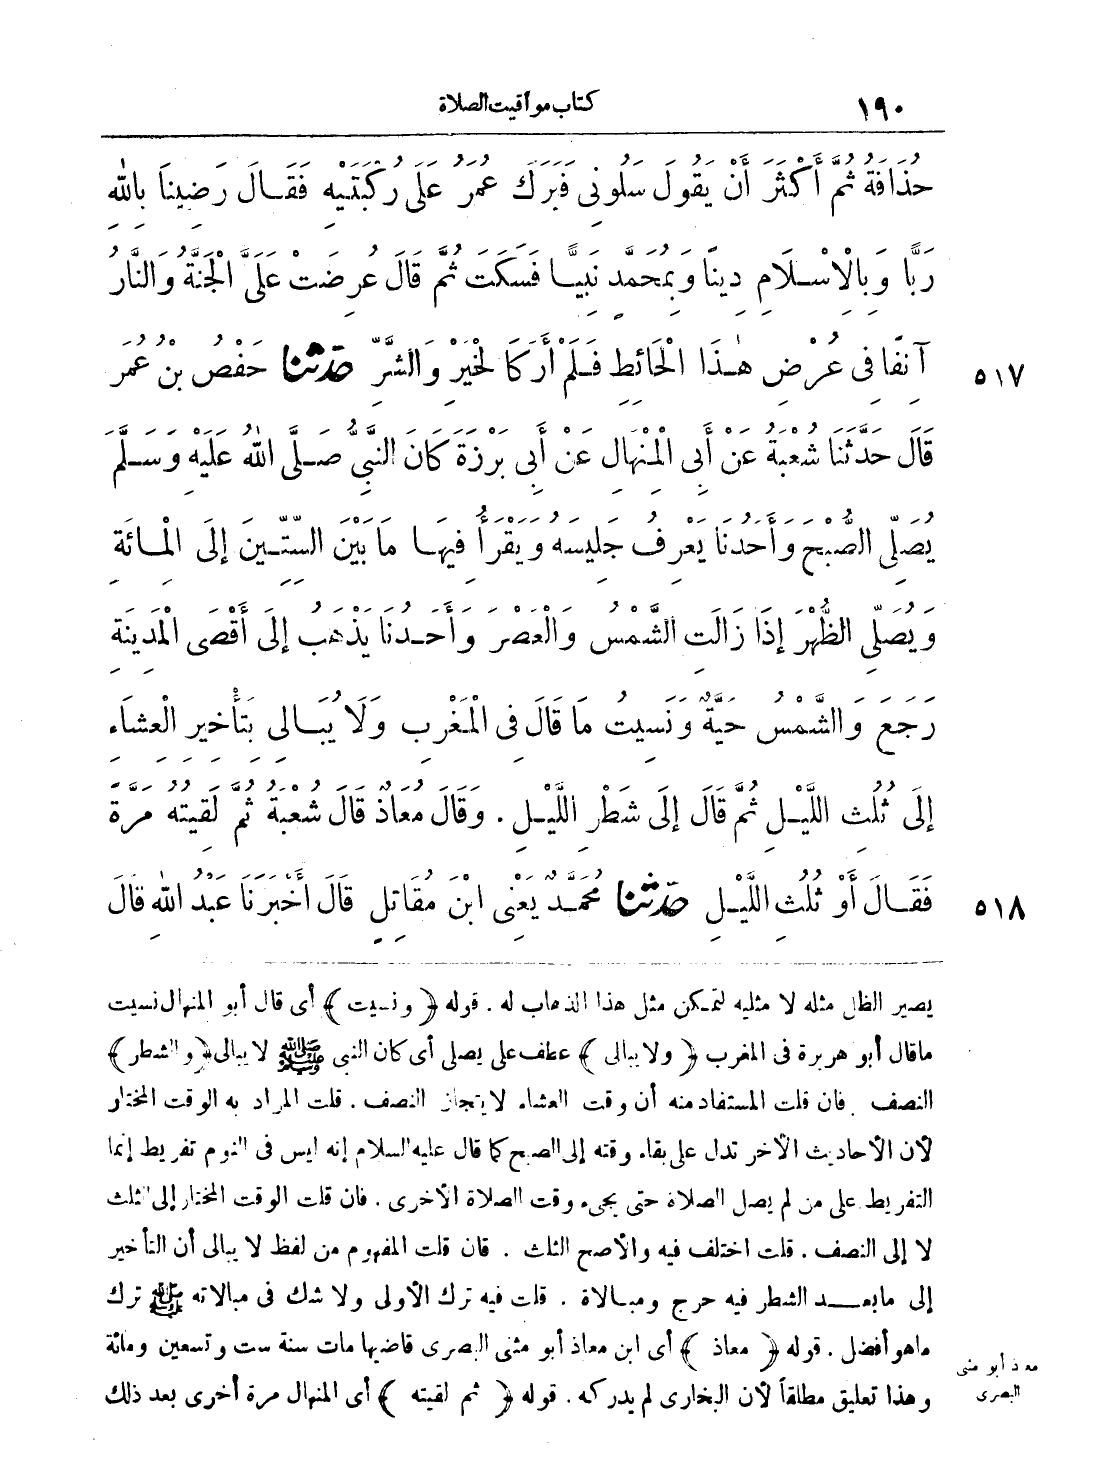 ١٩٠ كتاب مواقيت الصلاة
حُذَافَةُ ثُمَّ أَكْثَرَ أَنْ يَقُولَ سَلُونِى فَبَرَكَ عُمَرُ عَلَى رُكْبَتَيْهِ فَقَالَ رَضِينَا بِاللهِ
رَبًّا وَبِالْاِسْلَامِ دِينًا وَبِمُحَمَّدٍ نَبِيًّا فَسَكَتَ ثُمَّ قَالَ عُرِضَتْ عَلَىَّ الْجَنَّةُ وَالنَّارُ
٥١٧ آنِفًا فِى عُرْضِ هٰذَا الْحَائِطِ فَلَمْ أَرَ كَالْخَيْرِ وَالشَّرِّ حَدَّثَنَا حَفْصُ بْنُ عُمَرَ
قَالَ حَدَّثَنَا شُعْبَةُ عَنْ أَبِى الْمِنْهَالِ عَنْ أَبِى بَرْزَةَ كَانَ النَّبِىُّ صَلَّى اللهُ عَلَيْهِ وَسَلَّمَ
يُصَلِّى الصُّبْحَ وَأَحَدُنَا يَعْرِفُ جَلِيسَهُ وَيَقْرَأُ فِيهَا مَا بَيْنَ السِّتِّينَ إِلَى الْمِائَةِ
وَيُصَلِّى الظُّهْرَ إِذَا زَالَتِ الشَّمْسُ وَالْعَصْرَ وَأَحَدُنَا يَذْهَبُ إِلَى أَقْصَى الْمَدِينَةِ
رَجَعَ وَالشَّمْسُ حَيَّةٌ وَنَسِيتُ مَا قَالَ فِى الْمَغْرِبِ وَلَا يُبَالِى بِتَأْخِيرِ الْعِشَاءِ
إِلَى ثُلُثِ اللَّيْلِ ثُمَّ قَالَ إِلَى شَطْرِ اللَّيْلِ . وَقَالَ مُعَاذٌ قَالَ شُعْبَةُ ثُمَّ لَقِيتُهُ مَرَّةً
٥١٨ فَقَالَ أَوْ ثُلُثِ اللَّيْلِ حَدَّثَنَا مُحَمَّدٌ يَعْنِى ابْنَ مُقَاتِلٍ قَالَ أَخْبَرَنَا عَبْدُ اللهِ قَالَ
يصير الظل مثله لا مثليه لتمكن مثل هذا الذهاب له . قوله ﴿ ونسيت ﴾ أى قال أبو المنهال نسيت
ماقال أبو هريرة فى المغرب ﴿ ولا يبالى ﴾ عطف على يصلى أى كان النبى ﷺ لا يبالى ﴿ والشطر ﴾
النصف . فان قلت المستفاد منه أن وقت العشاء لا يتجاز النصف . قلت المراد به الوقت المختار
لأن الأحاديث الأخر تدل على بقاء وقته إلى الصبح كما قال عليه السلام إنه ليس فى النوم تفريط إنما
التفريط على من لم يصل الصلاة حتى يجىء وقت الصلاة الأخرى . فان قلت الوقت المختار إلى الثلث
لا إلى النصف . قلت اختلف فيه والأصح الثلث . فان قلت المفهوم من لفظ لا يبالى أن التأخير
إلى مابعد الشطر فيه حرج ومبالاة . قلت فيه ترك الأولى ولا شك فى مبالاته ﷺ ترك
ماهو أفضل . قوله ﴿ معاذ ﴾ أى ابن معاذ أبو مثنى البصرى قاضيها مات سنة ست وتسعين ومائة
وهذا تعليق مطلقاً لأن البخارى لم يدركه . قوله ﴿ ثم لقيته ﴾ أى المنهال مرة أخرى بعد ذلك
معاذ أبو مثنى
البصرى